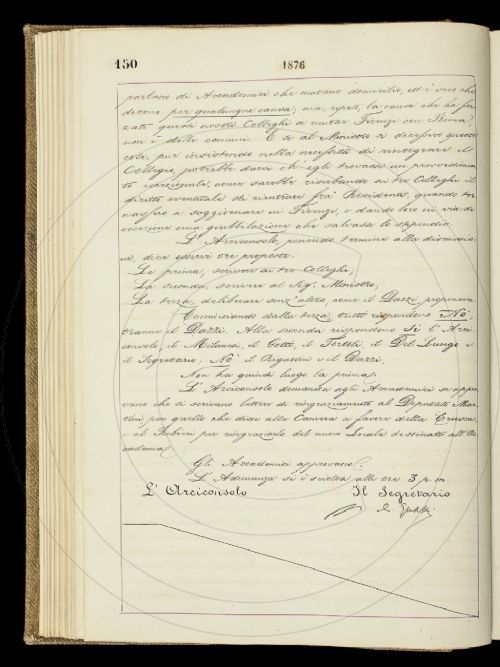 150
1876
parlano di Accademici che mutano domicilio, ed è vero che
dicono per qualunque causa; ora, ripeto, la causa che ha for
zato questi nostri Colleghi a mutar Firenze con Roma,
non è delle comuni. E se al Ministro si dicesse queste
cose, pur insistendo nella necessità di reintegrare il
Collegio, potrebbe darsi ch'egli trovasse un provvedimen
to eccezionale, come sarebbe riserbando ai tre Colleghi il
diritto eventuale di rientrare fra' Residenti, quando tor
nassero a soggiornare in Firenze, e dando loro in via di
eccezione una giubbilazione che salvasse lo stipendio.
L'Arciconsolo, ponendo termine alla discussio
ne, dice esservi tre proposte.
La prima, scrivere ai tre Colleghi;
La seconda, scrivere al Sig. Ministro;
La terza, deliberare senz'altro, come il Dazzi propone.
Cominciando dalla terza, tutti rispondono No,
tranne il Dazzi. Alla seconda rispondono Sì l'Arci
consolo, il Milanesi, il Gotti, il Tortoli, il Del Lungo e
il Segretario; No il Rigutini e il Dazzi.
Non ha quindi luogo la prima.
L'Arciconsolo domanda agli Accademici se appro
vano che si scrivano lettere di ringraziamento al Deputato Mar
tini per quello che disse alla Camera a favore della Crusca,
e al Rubini per ringraziarlo del nuovo Locale destinato all'Ac
cademia.
Gli Accademici approvano.
L'Adunanza si è sciolta alle ore 3 p. m.
L'Arciconsolo Il Segretario